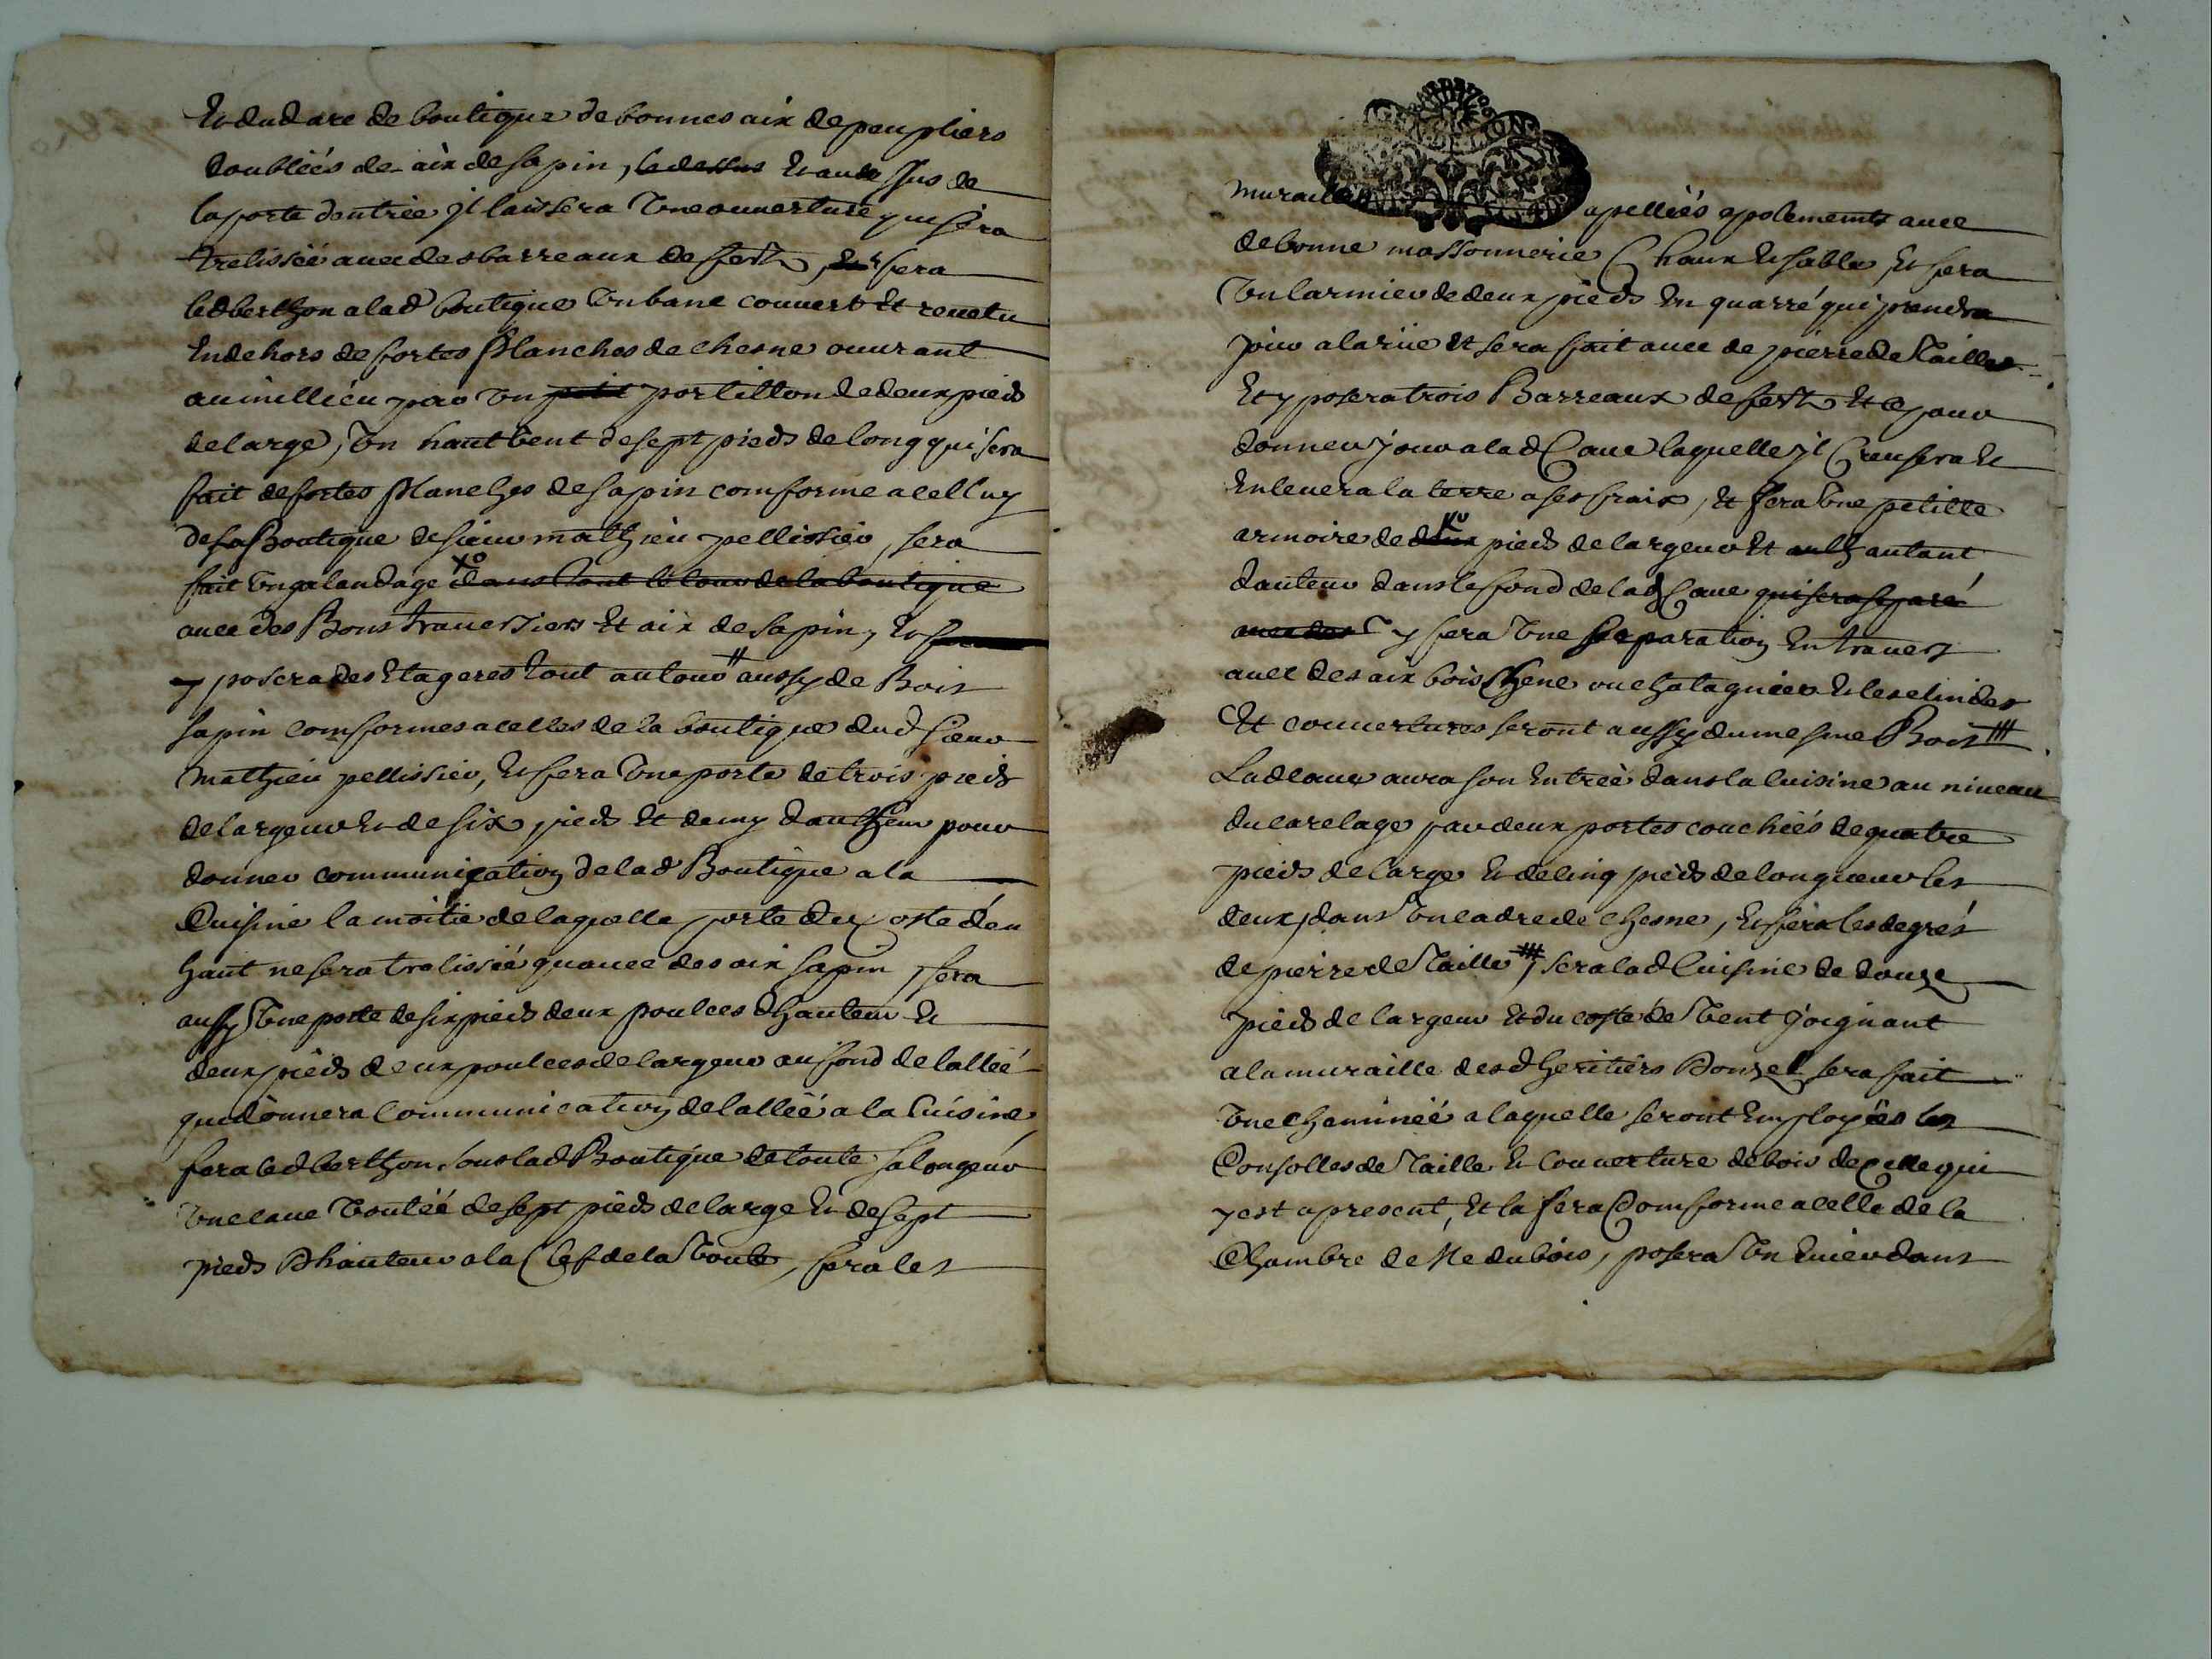 Et dud arc de boutique de bonnes aix de peupliers
doubliés de aix de sapin, le dessus Et au dessus de
la porte dentrée jl laissera Une ouuerture qui sera
trelissée auec des barreaux de fert, Et fera
led berthon a lad boutique Un banc couuert Et reuetu
En dehors de fortes Planches de chesne ouurant
au millieu par Un petit portillon de deux pieds
de large, Un hautbent de sept pieds de long qui sera
fait de fortes Planches de sapin comforme a celluy
de la Boutique de sieur mathieu pellissier, sera
fait Un galandage xo dans tout le tour de la boutique
auec des Bons trauersiers Et aix de sapin, Et
y posera des Etageres tout autour # aussy de Bois
sapin comformes a celles de la boutique dud sieur
Mathieu pellissier, Et fera Une porte de trois pieds
de largeur Et de six pieds Et demy dautheur pour
donner communication de lad Boutique a la
Cuisine la moitié de laquelle porte du Costé den
haut ne sera trelissée quauec des aix sapin, fera
aussy Une porte de six pieds deux poulces dhauteur Et
deux pieds deux poulces de largeur au fond de lallée
qui donnera Communication de lallée a la Cuisine
fera led berthon sous lad Boutique de toute sa longeur
Une caue Voutée de sept pieds de large Et de sept
pieds Dhauteur a la Clef de la Voute, fera les
murailles apellées apolements auec
de bonne massonnerie Chaux Et sable, Et fera
Un larmier de deux pieds En quarré qui prendra
jour a la rüe Et sera fait auec de pierre de Taille
Et y posera trois Barreaux de fert Et ce pour
donner jour a lad Caue laquelle jl Creusera Et
Enleuera la terre a ses fraix, Et fera Une petitte
armoire de deux xo pieds de largeur Et autant
dauteur dans le fond de lad Caue qui sera separé
auec des y fera Une separation En trauers
auec des aix bois Chene ou chatagnier Et les
Et couuertures seront aussy du mesme Bois #
Lad caue aura son Entrée dans la Cuisine au niueau
du carelage par deux portes couchées de quatre
pieds de large Et de cinq pieds de longueur les
deux, dans Un cadre de chesne, Et fera les degrés
de pierre de Taille #, sera lad Cuisine de douze
pieds de largeur Et du costé de Vent joignant
a la muraille desd heritiers Donzel sera fait
Une cheminée a laquelle seront Employées les
Consolles de Taille Et Couuerture de bois de Celle qui
y est apresent, Et la fera Comforme a celle de la
Chambre de Me dubois, posera Un Euier dans